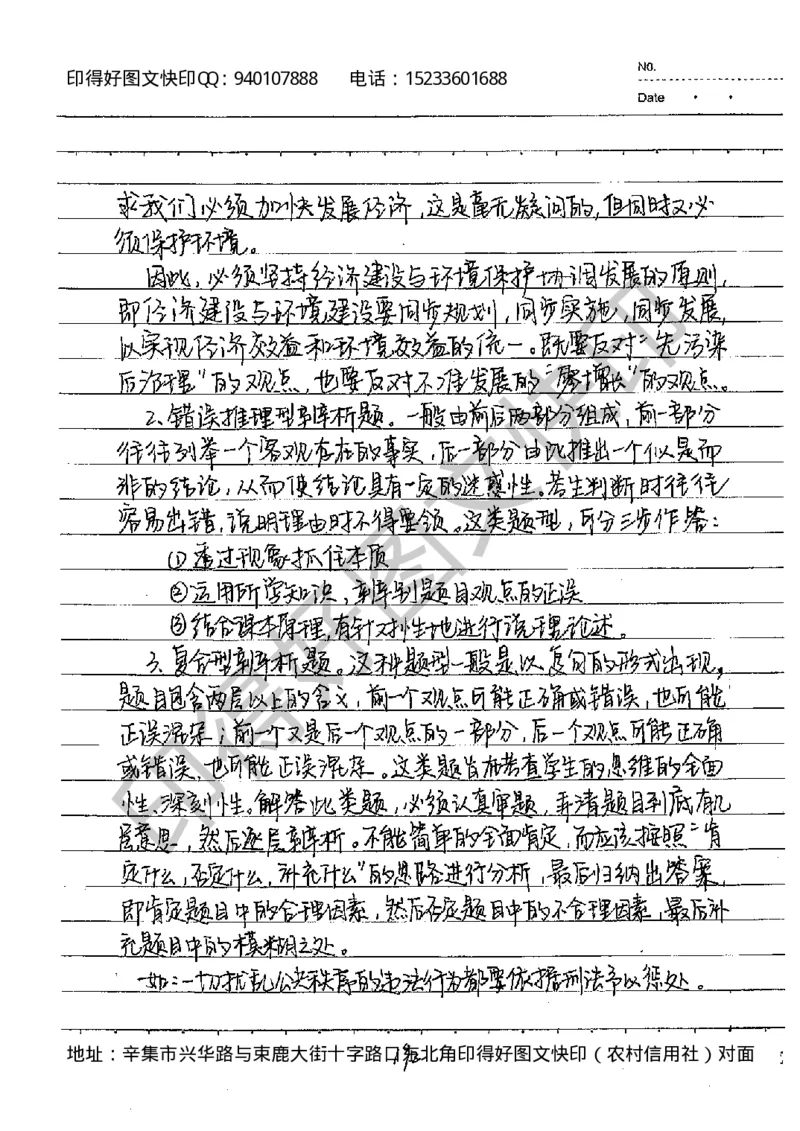 印得好图文快印QQ：940107888 电话：15233601688
No.
Date
求我们必须加快发展经济，这是毫无疑问的，但同时又必
须保护环境。
因此，必须坚持经济建设与环境保护协调发展的原则，
即经济建设与环境建设要同步规划，同步实施，同步发展，
以实现经济效益和环境效益的统一。既要反对“先污染
后治理”的观点，也要反对不准发展的“零增长”的观点。
2、错误推理型辨析题。一般由前后两部分组成，前一部分
往往列举一个客观存在的事实，后一部分由此推出一个似是而
非的结论，从而使结论具有一定的迷惑性。考生判断时往往
容易出错，说明理由时不得要领。这类题型，可分三步作答：
①透过现象抓住本质
②运用所学知识，辨别题目观点的正误
③结合课本原理，有针对性地进行说理论述。
3、复合型辨析题。这种题型一般是以复句的形式出现，
题目包含两层以上的含义，前一个观点可能正确或错误，也可能
正误混杂；前一个又是后一个观点的一部分，后一个观点可能正确
或错误，也可能正误混杂。这类题旨在考查学生的思维的全面
性、深刻性。解答此类题，必须认真审题，弄清题目到底有几
层意思，然后逐层辨析。不能简单的全面肯定，而应该按照“肯
定什么，否定什么，补充什么”的思路进行分析，最后归纳出答案，
即肯定题目中的合理因素，然后否定题目中的不合理因素，最后补
充题目中的模糊之处。
如：一切扰乱公共秩序的违法行为都要依据刑法予以惩处。
地址：辛集市兴华路与束鹿大街十字路口东北角印得好图文快印（农村信用社）对面
印得好图文快印